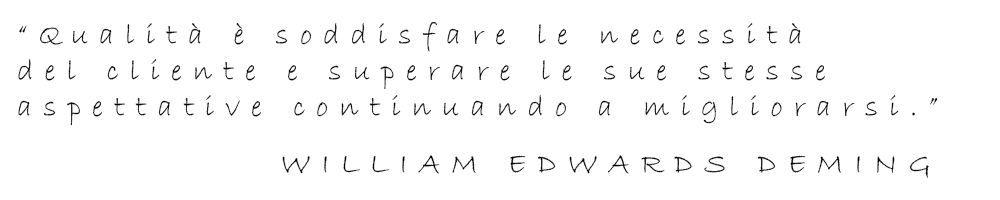 “Qualità è soddisfare le necessità
del cliente e superare le sue stesse
aspettative continuando a migliorarsi.”
WILLIAM EDWARDS DEMING